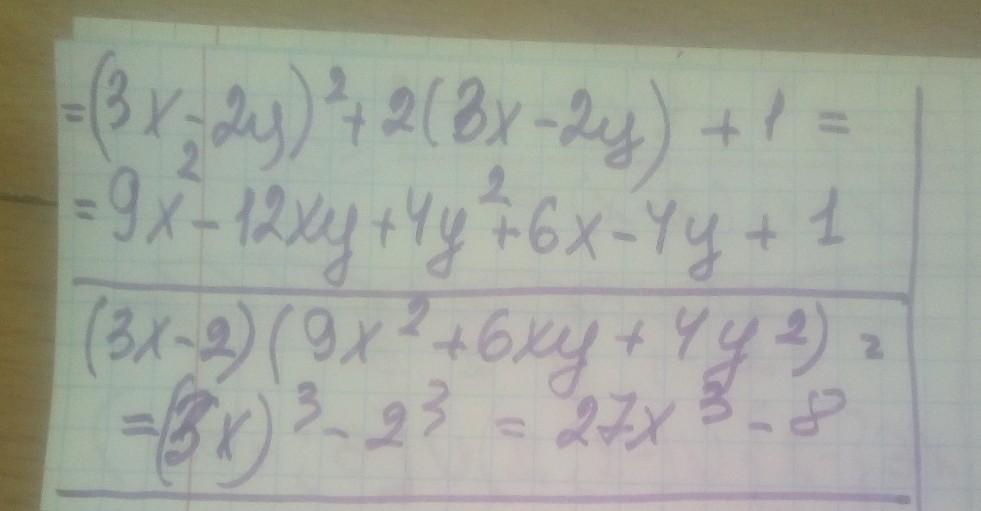 =(3x-2y)²+2(3x-2y)+1=
=9x²-12xy+4y²+6x-4y+1
(3x-2)(9x²+6xy+4y²)=
=(3x)³-2³=27x³-8